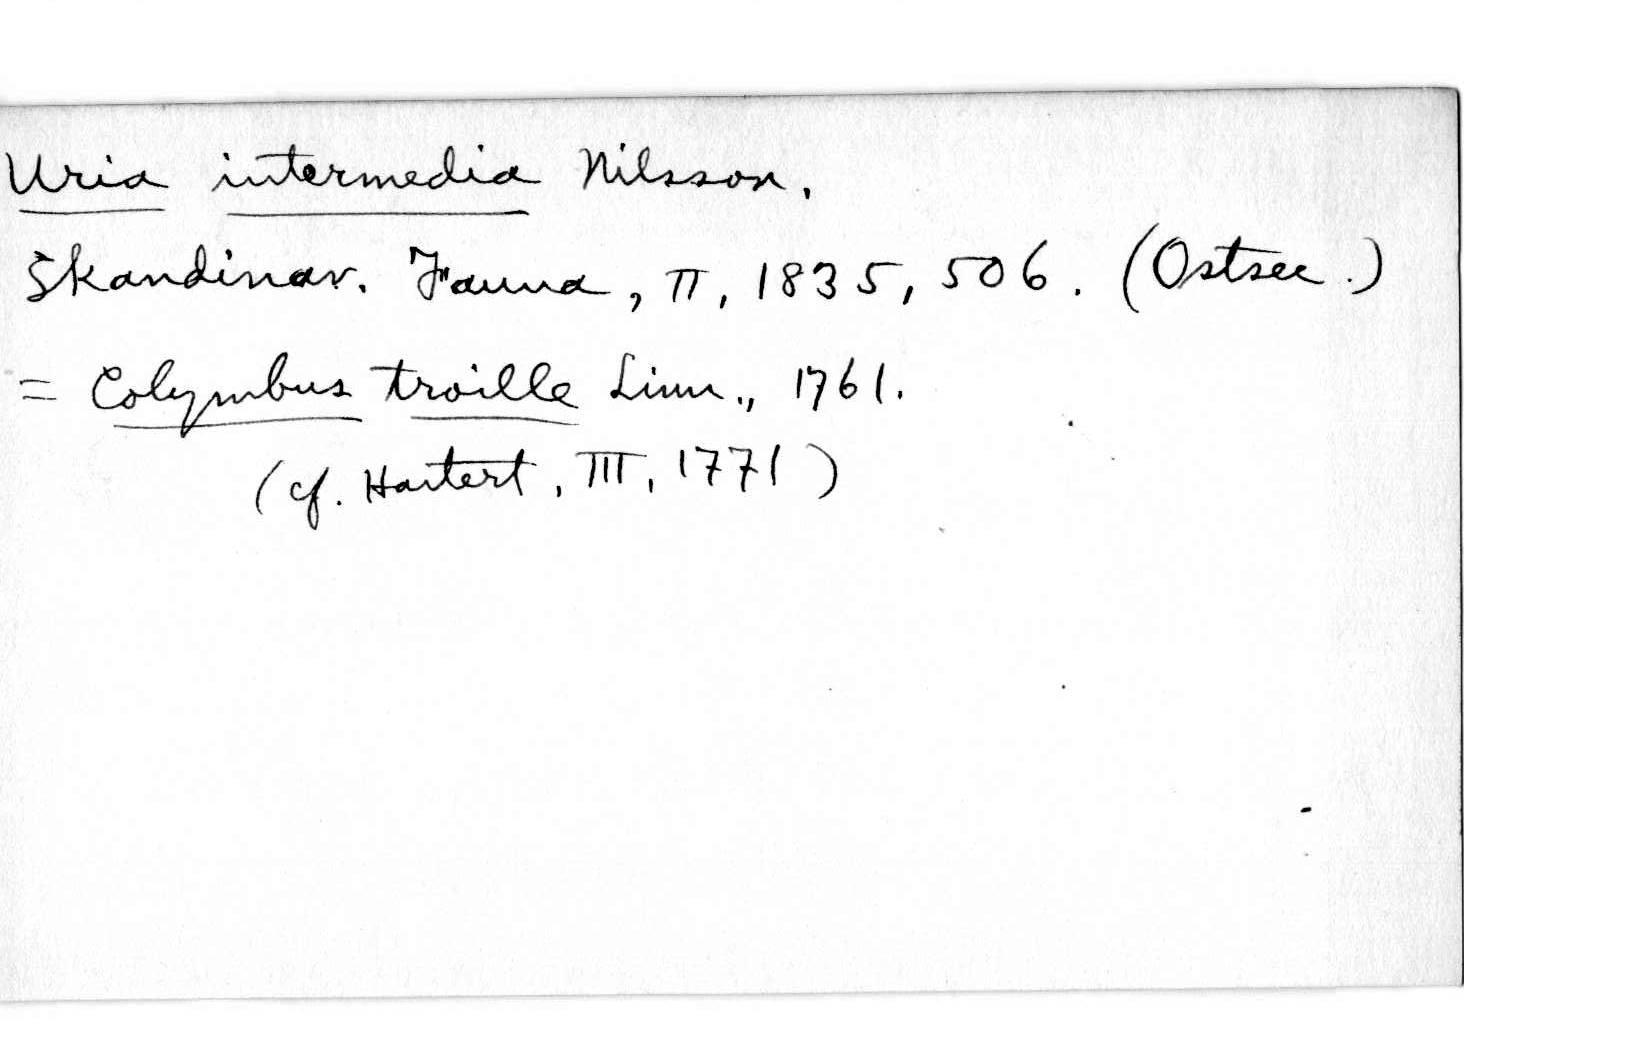 Uria intermedia Nilsson.
Skandinav. Fauna, II, 1835, 506. (Ostsee.)
= Colymbus troille Linn., 1761.
(cf. Hartert, III, 1771)